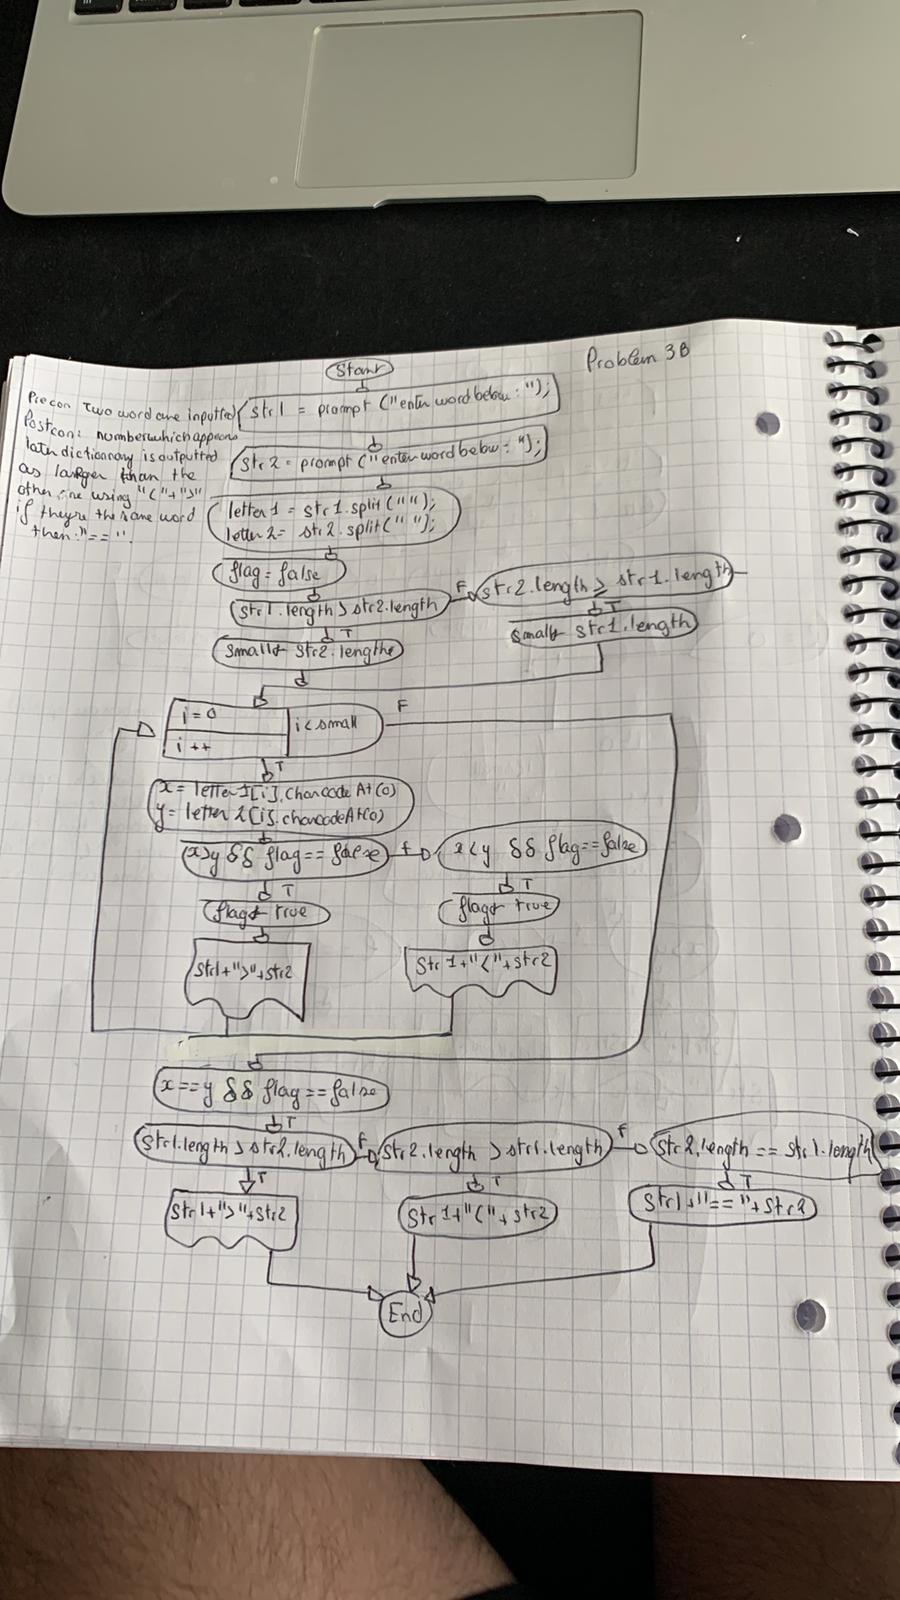 Start
Problem 3B
Precon Two word are inputted
Postcon: number which appears
late dictionnary is outputted
as larger than the
other one using "<"+">"
if they're the same word
then: "==".
str1 = prompt ("enter word below: ");
str2 = prompt ("enter word below: ");
letter1 = str1.split("");
letter2 = str2.split("");
flag = false
str1.length > str2.length
F
str2.length ≥ str1.length
T
T
small← str2.length
small← str1.length
i=0
i < small
F
i++
T
x = letter1[i].charcodeAt(0)
y = letter2[i].charcodeAt(0)
x>y && flag == false
F
x<y && flag == false
T
T
flag← true
flag← true
str1+">"+str2
Str1+"<"+str2
x==y && flag == false
T
str1.length > str2.length
F
str2.length > str1.length
F
str2.length == str1.length
T
T
T
str1+">"+str2
str1+"<"+str2
str1+"=="+str2
End